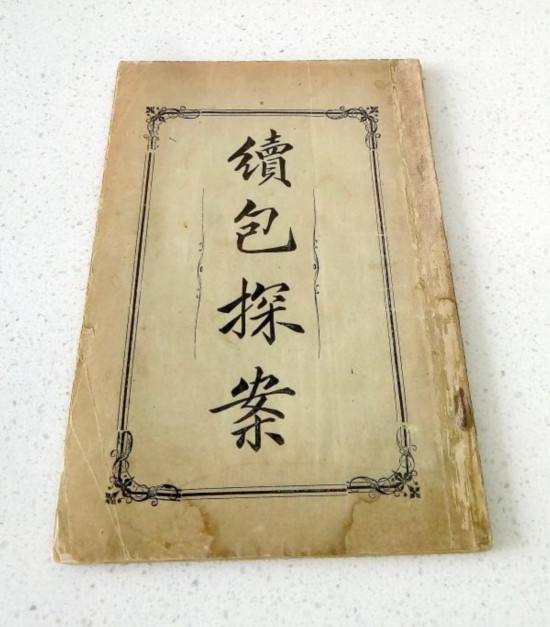 續包探案